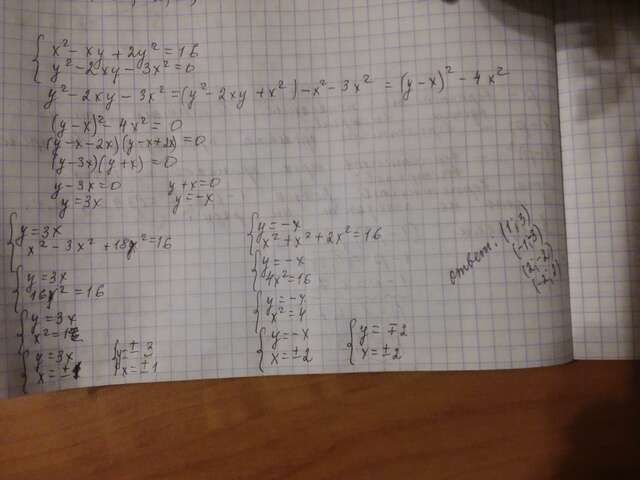 x² - xy + 2y² = 16
y² - 2xy - 3x² = 0
y² - 2xy - 3x² = (y² - 2xy + x²) - x² - 3x² = (y - x)² - 4x²
(y - x)² - 4x² = 0
(y - x - 2x)(y - x + 2x) = 0
(y - 3x)(y + x) = 0
y - 3x = 0 y + x = 0
y = 3x y = -x
y = 3x
x² - 3x² + 18x² = 16
y = 3x
16x² = 16
y = 3x
x² = 1
y = 3x
x = ±1
y = ± 3
x = ±1
y = -x
x² + x² + 2x² = 16
y = -x
4x² = 16
y = -x
x² = 4
y = -x
x = ±2
y = ∓2
x = ±2
ответ: (1; 3)
(-1; 3)
(2; -2)
(-2; 2)